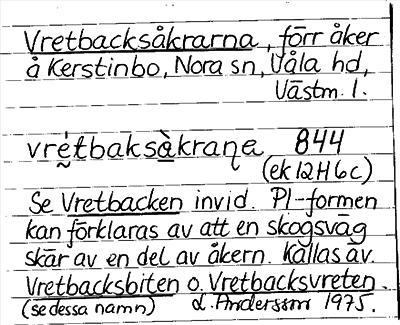 Vretbacksåkrarna, förr åker
å Kerstinbo, Nora sn, Våla hd,
Västm. l.
vrétbaksàkraṇa 844
(ek 12H6c)
Se Vretbacken invid. Pl-formen
kan förklaras av att en skogsväg
skär av en del av åkern. Kallas äv.
Vretbacksbiten o. Vretbacksvreten.
(se dessa namn) L. Andersson 1975.